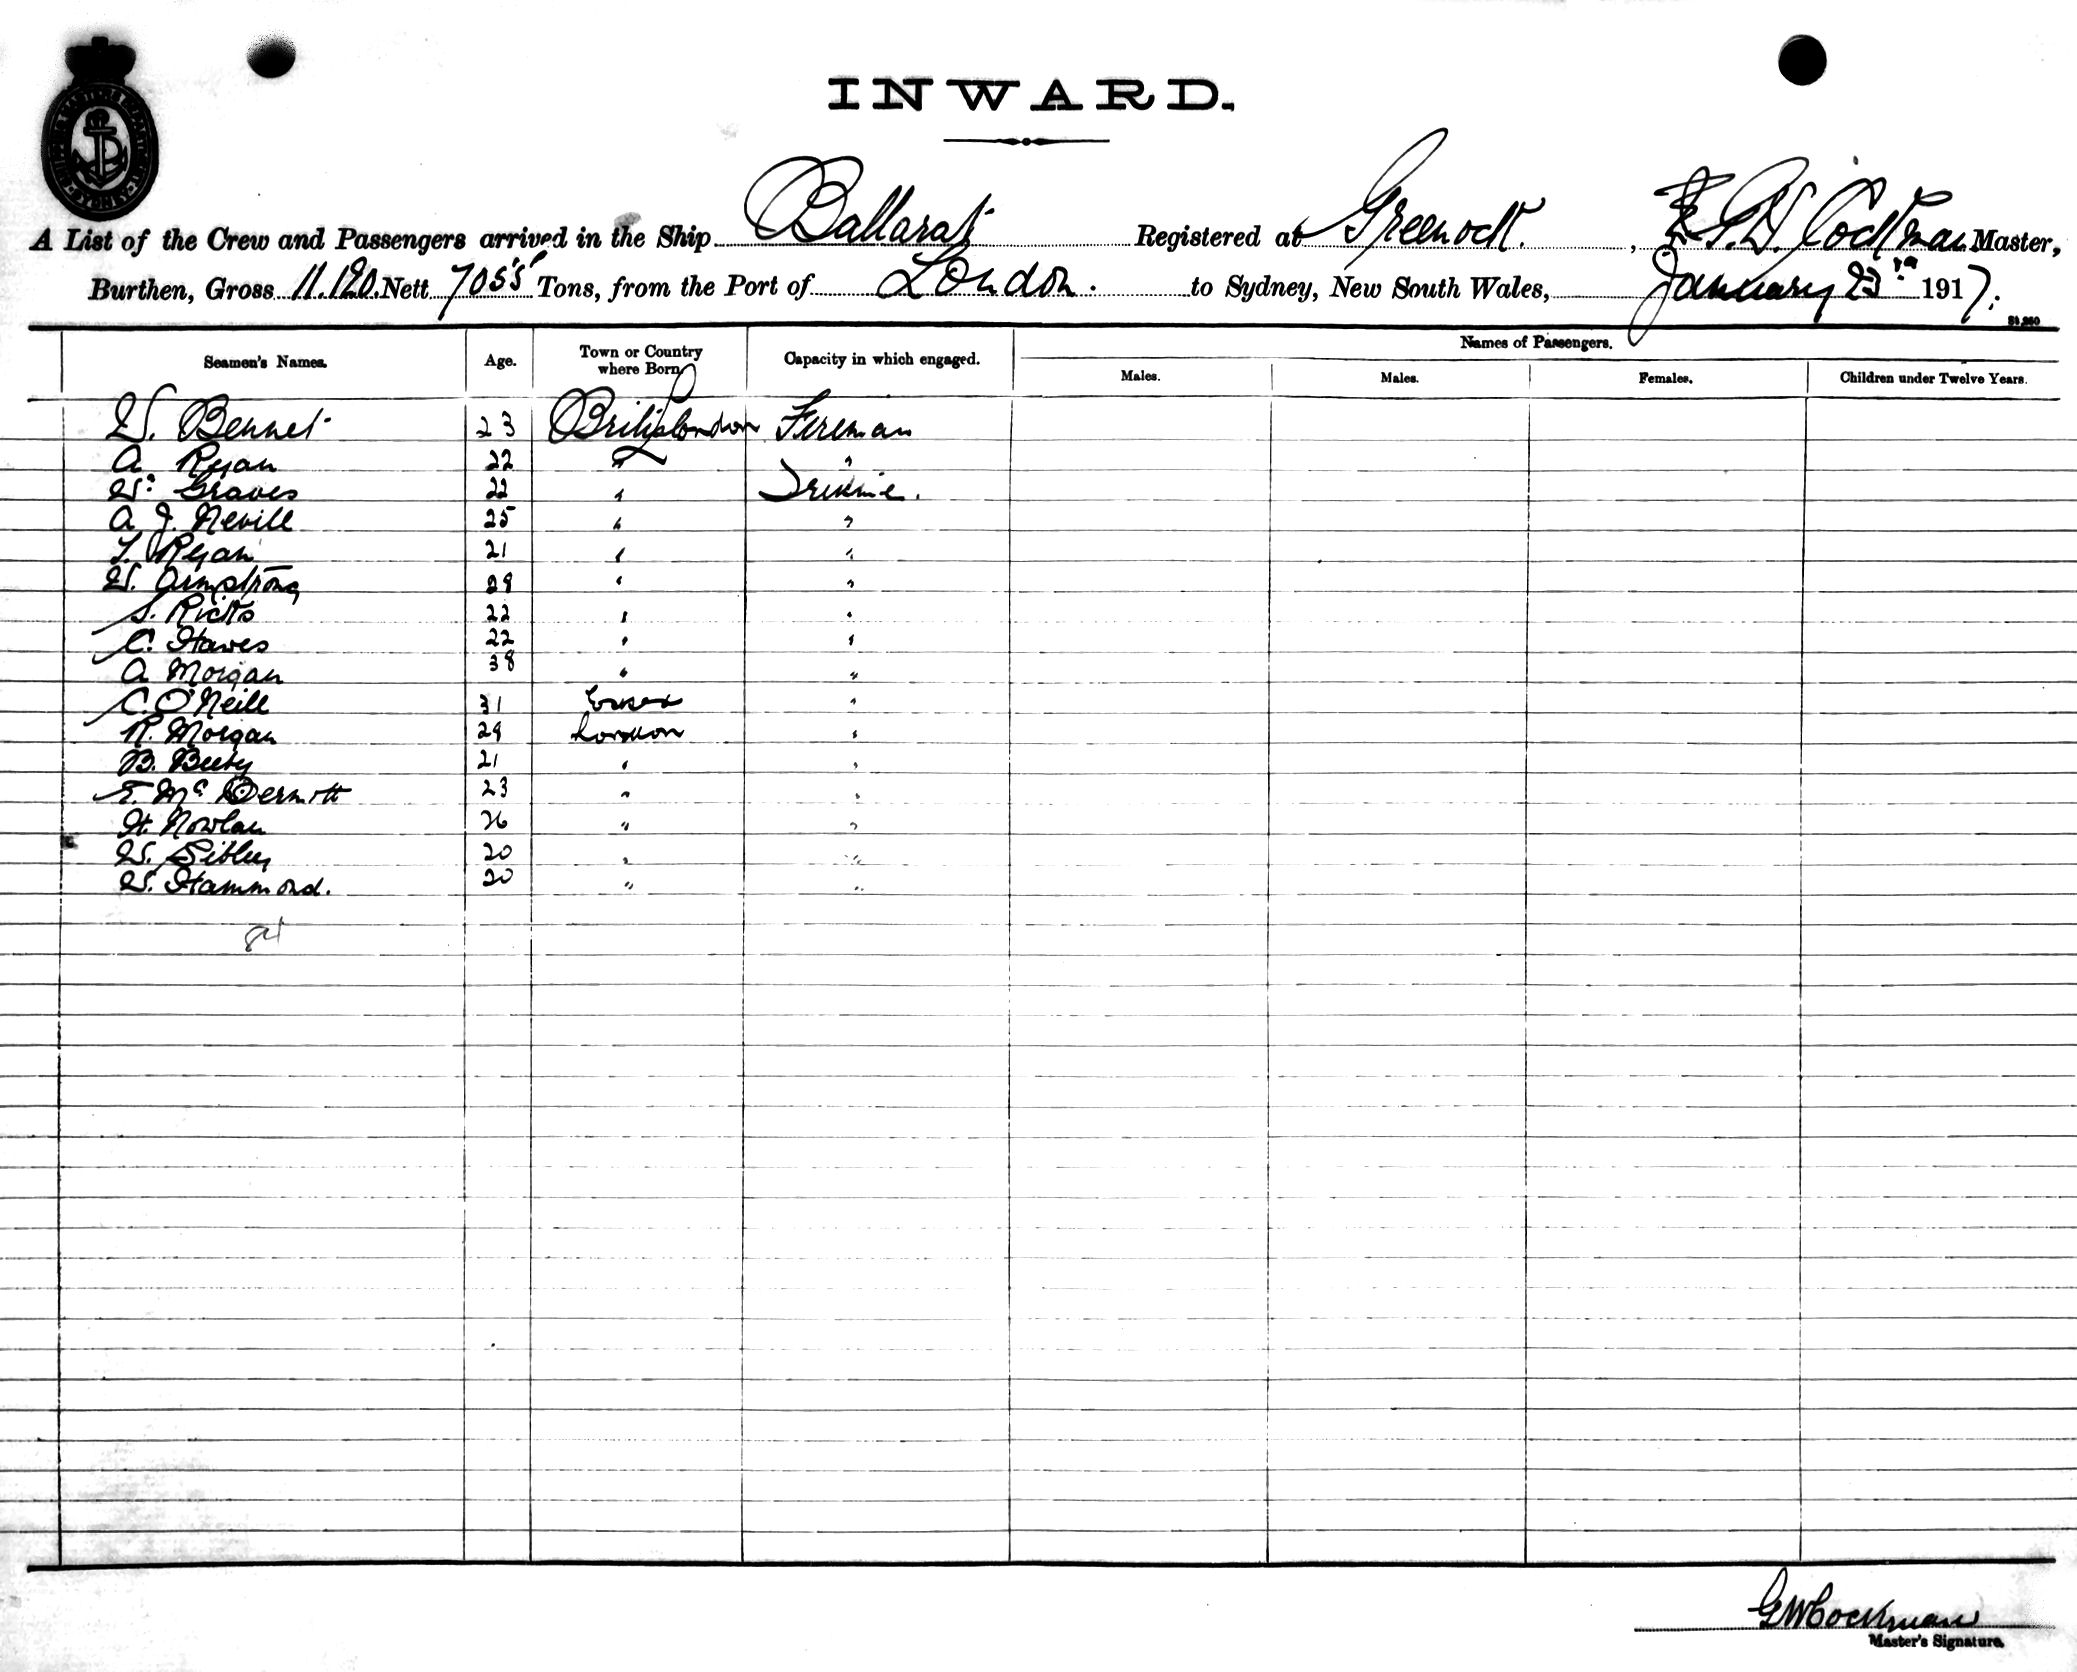 INWARD.
A List of the Crew and Passengers arrived in the Ship Ballarat Registered at Greenock. , G. W. Cockman Master,
Burthen, Gross 11.120. Nett 7055 Tons, from the Port of London. to Sydney, New South Wales, January 23rd 1917.
Names of Passengers.
Seamen's Names. Age. Town or Country where Born. Capacity in which engaged. Males. Males. Females. Children under Twelve Years.
W. Bennet 23 British London Fireman
A Ryan 22 " "
W. Graves 22 " Trimmer.
A J. Nevill 25 " "
T. Ryan 21 " "
W. Armstrong 28 " "
S. Ricks 22 " "
C. Hawes 22 " "
A Morgan 38 " "
C. O'Neill 31 "
R. Morgan 29 London "
B. 21 " "
E. McDermott 23 " "
H. Nowlan 26 " "
W. Sibley 20 " "
W. Hammond. 20 " "
GWCockman
Master's Signature.